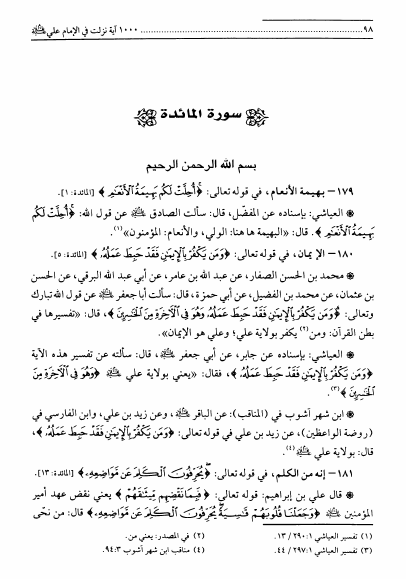 ٩٨ ........................................ ١٠٠٠ آية نزلت في الإمام علي ﷺ
سورة المائدة
بسم الله الرحمن الرحيم
١٧٩- بهيمة الأنعام، في قوله تعالى: ﴿أُحِلَّتْ لَكُم بَهِيمَةُ الْأَنْعَامِ﴾ [المائدة: ١].
العياشي: بإسناده عن المفضّل، قال: سألت الصادق عن قول الله: ﴿أُحِلَّتْ لَكُم
بَهِيمَةُ الْأَنْعَامِ﴾. قال: «البهيمة ها هنا: الولي، والأنعام: المؤمنون»(١).
١٨٠- الإيمان، في قوله تعالى: ﴿وَمَن يَكْفُرْ بِالْإِيمَانِ فَقَدْ حَبِطَ عَمَلُهُ﴾ [المائدة: ٥].
محمد بن الحسن الصفار، عن عبد الله بن عامر، عن أبي عبد الله البرقي، عن الحسن
بن عثمان، عن محمد بن الفضيل، عن أبي حمزة، قال: سألت أبا جعفر عن قول الله تبارك
وتعالى: ﴿وَمَن يَكْفُرْ بِالْإِيمَانِ فَقَدْ حَبِطَ عَمَلُهُ وَهُوَ فِي الْآخِرَةِ مِنَ الْخَاسِرِينَ﴾، قال: «تفسيرها في
بطن القرآن: ومن(٢) يكفر بولاية علي؛ وعلي هو الإيمان».
العياشي: بإسناده عن جابر، عن أبي جعفر، قال: سألته عن تفسير هذه الآية
﴿وَمَن يَكْفُرْ بِالْإِيمَانِ فَقَدْ حَبِطَ عَمَلُهُ﴾، فقال: «يعني بولاية علي ﴿وَهُوَ فِي الْآخِرَةِ مِنَ
الْخَاسِرِينَ﴾»(٣).
ابن شهر آشوب في (المناقب): عن الباقر، وعن زيد بن علي، وابن الفارسي في
(روضة الواعظين)، عن زيد بن علي في قوله تعالى: ﴿وَمَن يَكْفُرْ بِالْإِيمَانِ فَقَدْ حَبِطَ عَمَلُهُ﴾،
قال: بولاية علي(٤).
١٨١- إنه من الكلم، في قوله تعالى: ﴿يُحَرِّفُونَ الْكَلِمَ عَن مَّوَاضِعِهِ﴾ [المائدة: ١٣].
قال علي بن إبراهيم: قوله تعالى: ﴿فَبِمَا نَقْضِهِم مِّيثَاقَهُمْ﴾ يعني نقض عهد أمير
المؤمنين ﴿وَجَعَلْنَا قُلُوبَهُمْ قَاسِيَةً يُحَرِّفُونَ الْكَلِمَ عَن مَّوَاضِعِهِ﴾ قال: من نحّى
(١) تفسير العياشي ١: ٢٩٠/ ١٣.
(٢) في المصدر: يعني من.
(٣) تفسير العياشي ١: ٢٩٧/ ٤٤.
(٤) مناقب ابن شهر آشوب ٣: ٩٤.